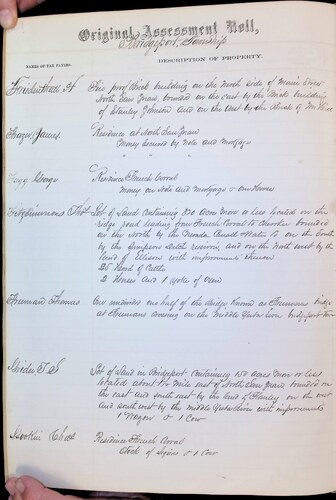 Original Assessment Roll,
Bridgeport Township
NAMES OF TAX PAYERS.
DESCRIPTION OF PROPERTY.
Fire proof Brick building on the North side of Main Street
North San Juan, bounded on the East by the Brick building
of Stanley Johnson and on the West by the
James
Residence at North San Juan
Money secured by Note and Mortgage
George
Residence French Corral
Money on Note and Mortgage &
Fitzsimmons Thos
Lot of Land containing 320 Acres More or Less located on the
ridge road leading from French Corral to bounded
on the North by the Nevada Water Co on the South
by the Simpson Ditch reservoir, and on the North West by the
land of Ellison with improvements thereon
25 Head of Cattle
2 Horses and 1 Yoke of Oxen
Freeman Thomas
One undivided one half of the Bridge Known as Freemans bridge
at Freemans Crossing on the Middle Yuba River Bridgeport Town
Lot of Land in Bridgeport containing 150 Acres More or Less
located about 1/4 mile east of North San Juan, bounded on
the east and south east by the land of on the west
and south west by the Middle Yuba River with improvements
1 Wagon & 1 Cow
Chas
Residence French Corral
Stock of & 1 Cow